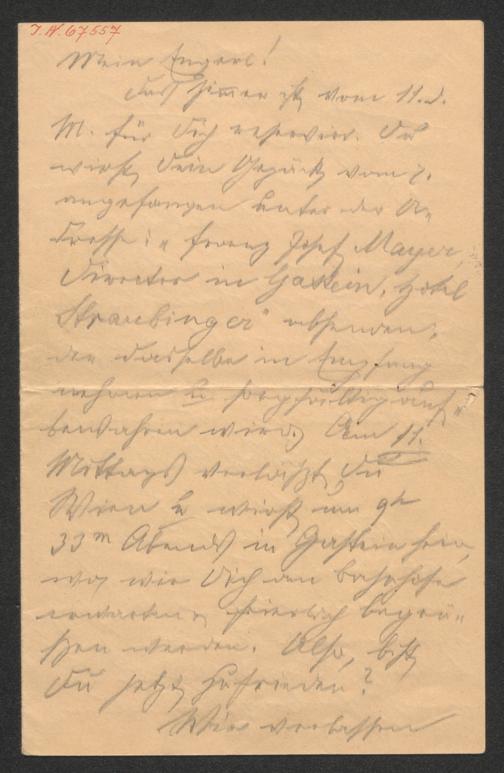 I.N. 67557
Mein Engerl!
Das Zimer ist vom 11. d.
M. für Dich reservirt. Du
wirst Dein Gepäck vom 7.
angefangen unter der A-
dresse: „Franz Josef Mayer,
Director in Gastein, Hotel
Straubinger" absenden,
der dasselbe in Empfang
nehmen u sorgfältig auf-
bewahren wird. Am 11.
Mittags verläßt Du
Wien u wirst um 9h
33m Abends in Gastein sein,
wo wir Dich am Bahnhofe
erwarten, feierlich begrü-
ßen werden. Also, bist
Du jetzt zufrieden?
Wir verlassen